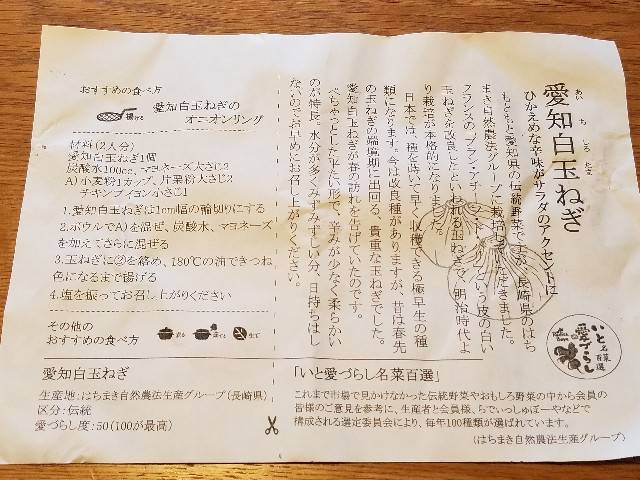 愛知白玉ねぎ
あいちしろたま
ひかえめな辛味がサラダのアクセントに
もともと愛知県の伝統野菜ですが、長崎県のはち
まき自然農法グループに栽培して頂きました。
フランスの「ブラン・アチーフ・ド・パリ」という皮の白い
玉ねぎを改良したといわれる玉ねぎで、明治時代よ
り栽培が本格的になりました。
日本では、種を蒔いて早く収穫できる極早生の種
類になります。今は改良種がありますが、昔は春先
の玉ねぎの端境期に出回る、貴重な玉ねぎでした。
愛知白玉ねぎが春の訪れを告げていたのです。
ぺちゃっとしたひらたい形で、辛みが少なく柔らかい
のが特長。水分が多くみずみずしい分、日持ちはし
ないのでお早めにお召し上がりください。
いと愛づらし
名菜百選
おすすめの食べ方
揚げる
愛知白玉ねぎの
オニオンリング
材料(2人分)
愛知白玉ねぎ1個
炭酸水100cc、マヨネーズ大さじ2
A)小麦粉1カップ、片栗粉大さじ2
チキンブイヨン小さじ1
1.愛知白玉ねぎは1cm幅の輪切りにする
2.ボウルでA)を混ぜ、炭酸水、マヨネーズ
を加えてさらに混ぜる
3.玉ねぎに②を絡め、180℃の油できつね
色になるまで揚げる
4.塩を振ってお召し上がりください
その他の
おすすめの食べ方
生で
愛知白玉ねぎ
生産地:はちまき自然農法生産グループ(長崎県)
区分:伝統
愛づらし度:50(100が最高)
「いと愛づらし名菜百選」
これまで市場で見かけなかった伝統野菜やおもしろ野菜の中から会員の
皆様のご意見を参考に、生産者と会員様、らでぃっしゅぼーやなどで
構成される選定委員会により、毎年100種類が選ばれています。
(はちまき自然農法生産グループ)